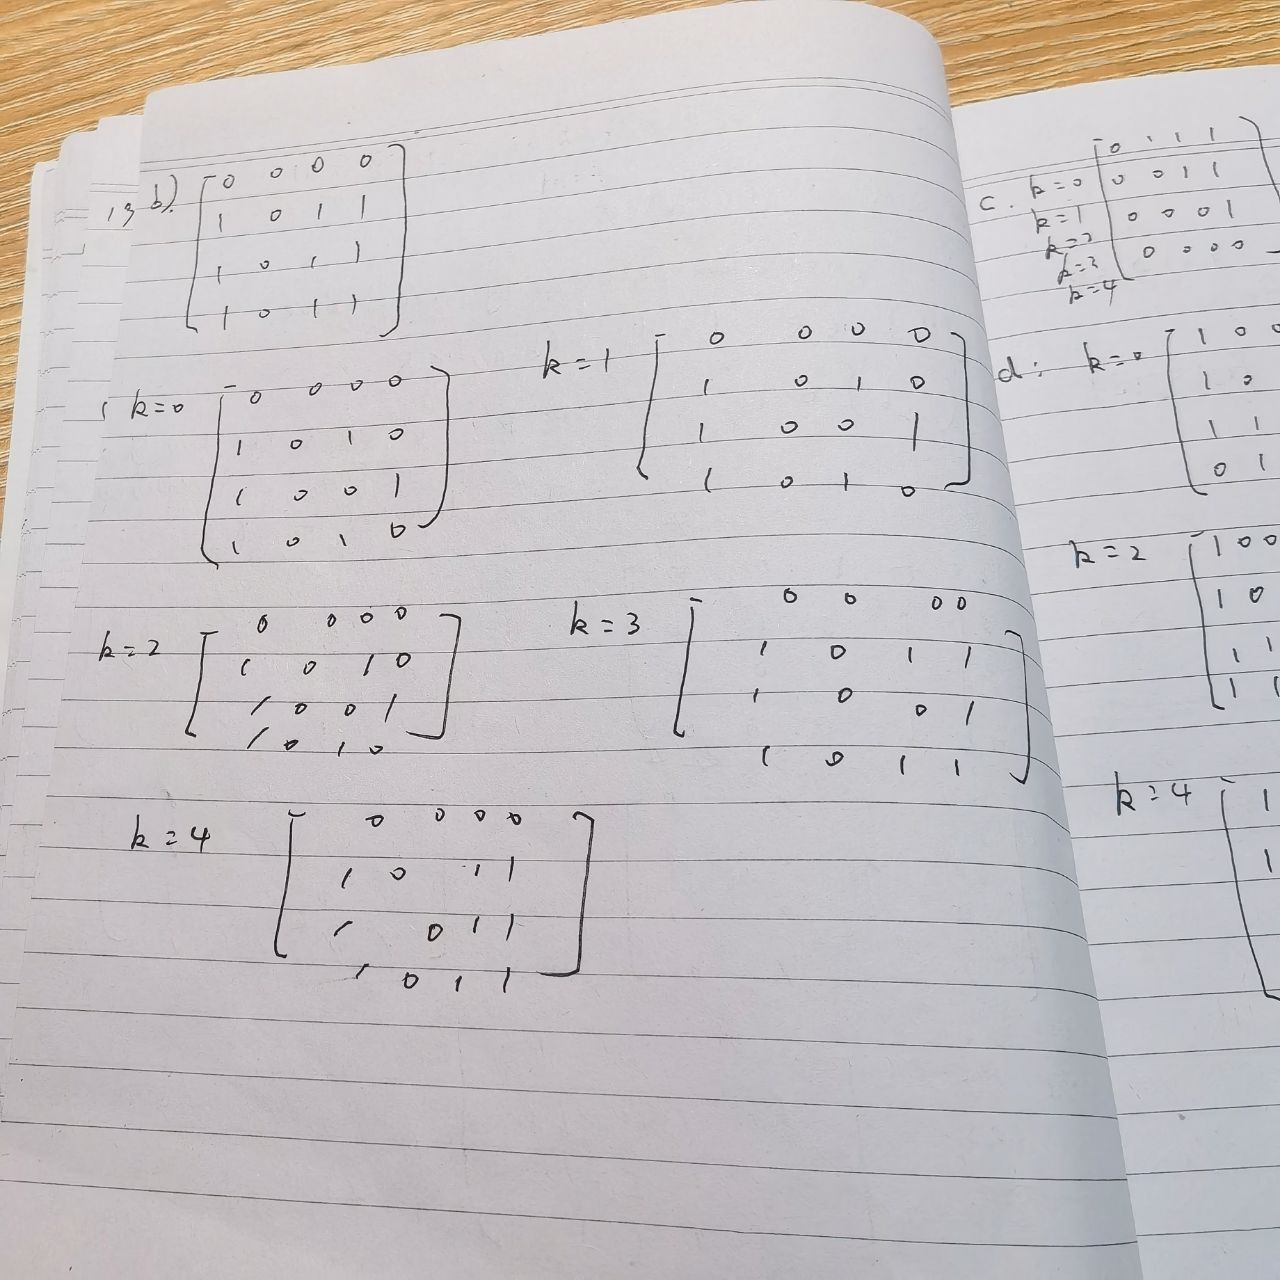 13 b).
0 0 0 0
1 0 1 1
1 0 1 1
1 0 1 1
k=0
0 0 0 0
1 0 1 0
1 0 0 1
1 0 1 0
k=1
0 0 0 0
1 0 1 0
1 0 0 1
1 0 1 0
k=2
0 0 0 0
1 0 1 0
1 0 0 1
1 0 1 0
k=3
0 0 0 0
1 0 1 1
1 0 0 1
1 0 1 1
k=4
0 0 0 0
1 0 1 1
1 0 1 1
1 0 1 1
c. k=0
k=1
k=2
k=3
k=4
0 1 1 1
0 0 1 1
0 0 0 1
0 0 0 0
d: k=0
1 0 0
1 0
1 1
0 1
k=2
1 0 0
1 0
1 1
1 1
k=4
1
1